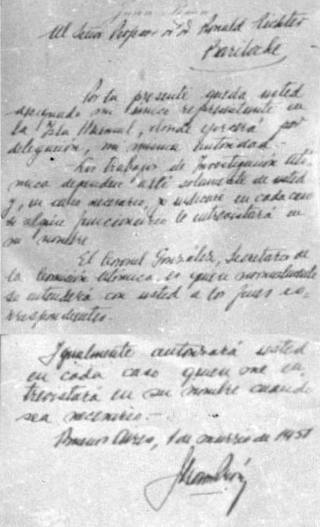 Juan Perón
Al Señor Profesor Dr. Dn. Ronald Richter
Bariloche
Por la presente queda usted
designado mi único representante en
la Isla Huemul, donde ejercerá por
delegación, mi misma autoridad.
Los trabajos de Investigación Ató-
mica dependen solamente de usted
y, en caso necesario, yo indicaré en cada caso
si algún funcionario lo entrevistará en
mi nombre
El Coronel González, Secretario de
la Comisión Atómica es quien normalmente
se entenderá con usted a los fines co-
rrespondientes.
Igualmente autorizará usted
en cada caso quien me en-
trevistará en su nombre cuando
sea necesario.—
Buenos Aires, 1 de marzo de 1951
Juan Perón